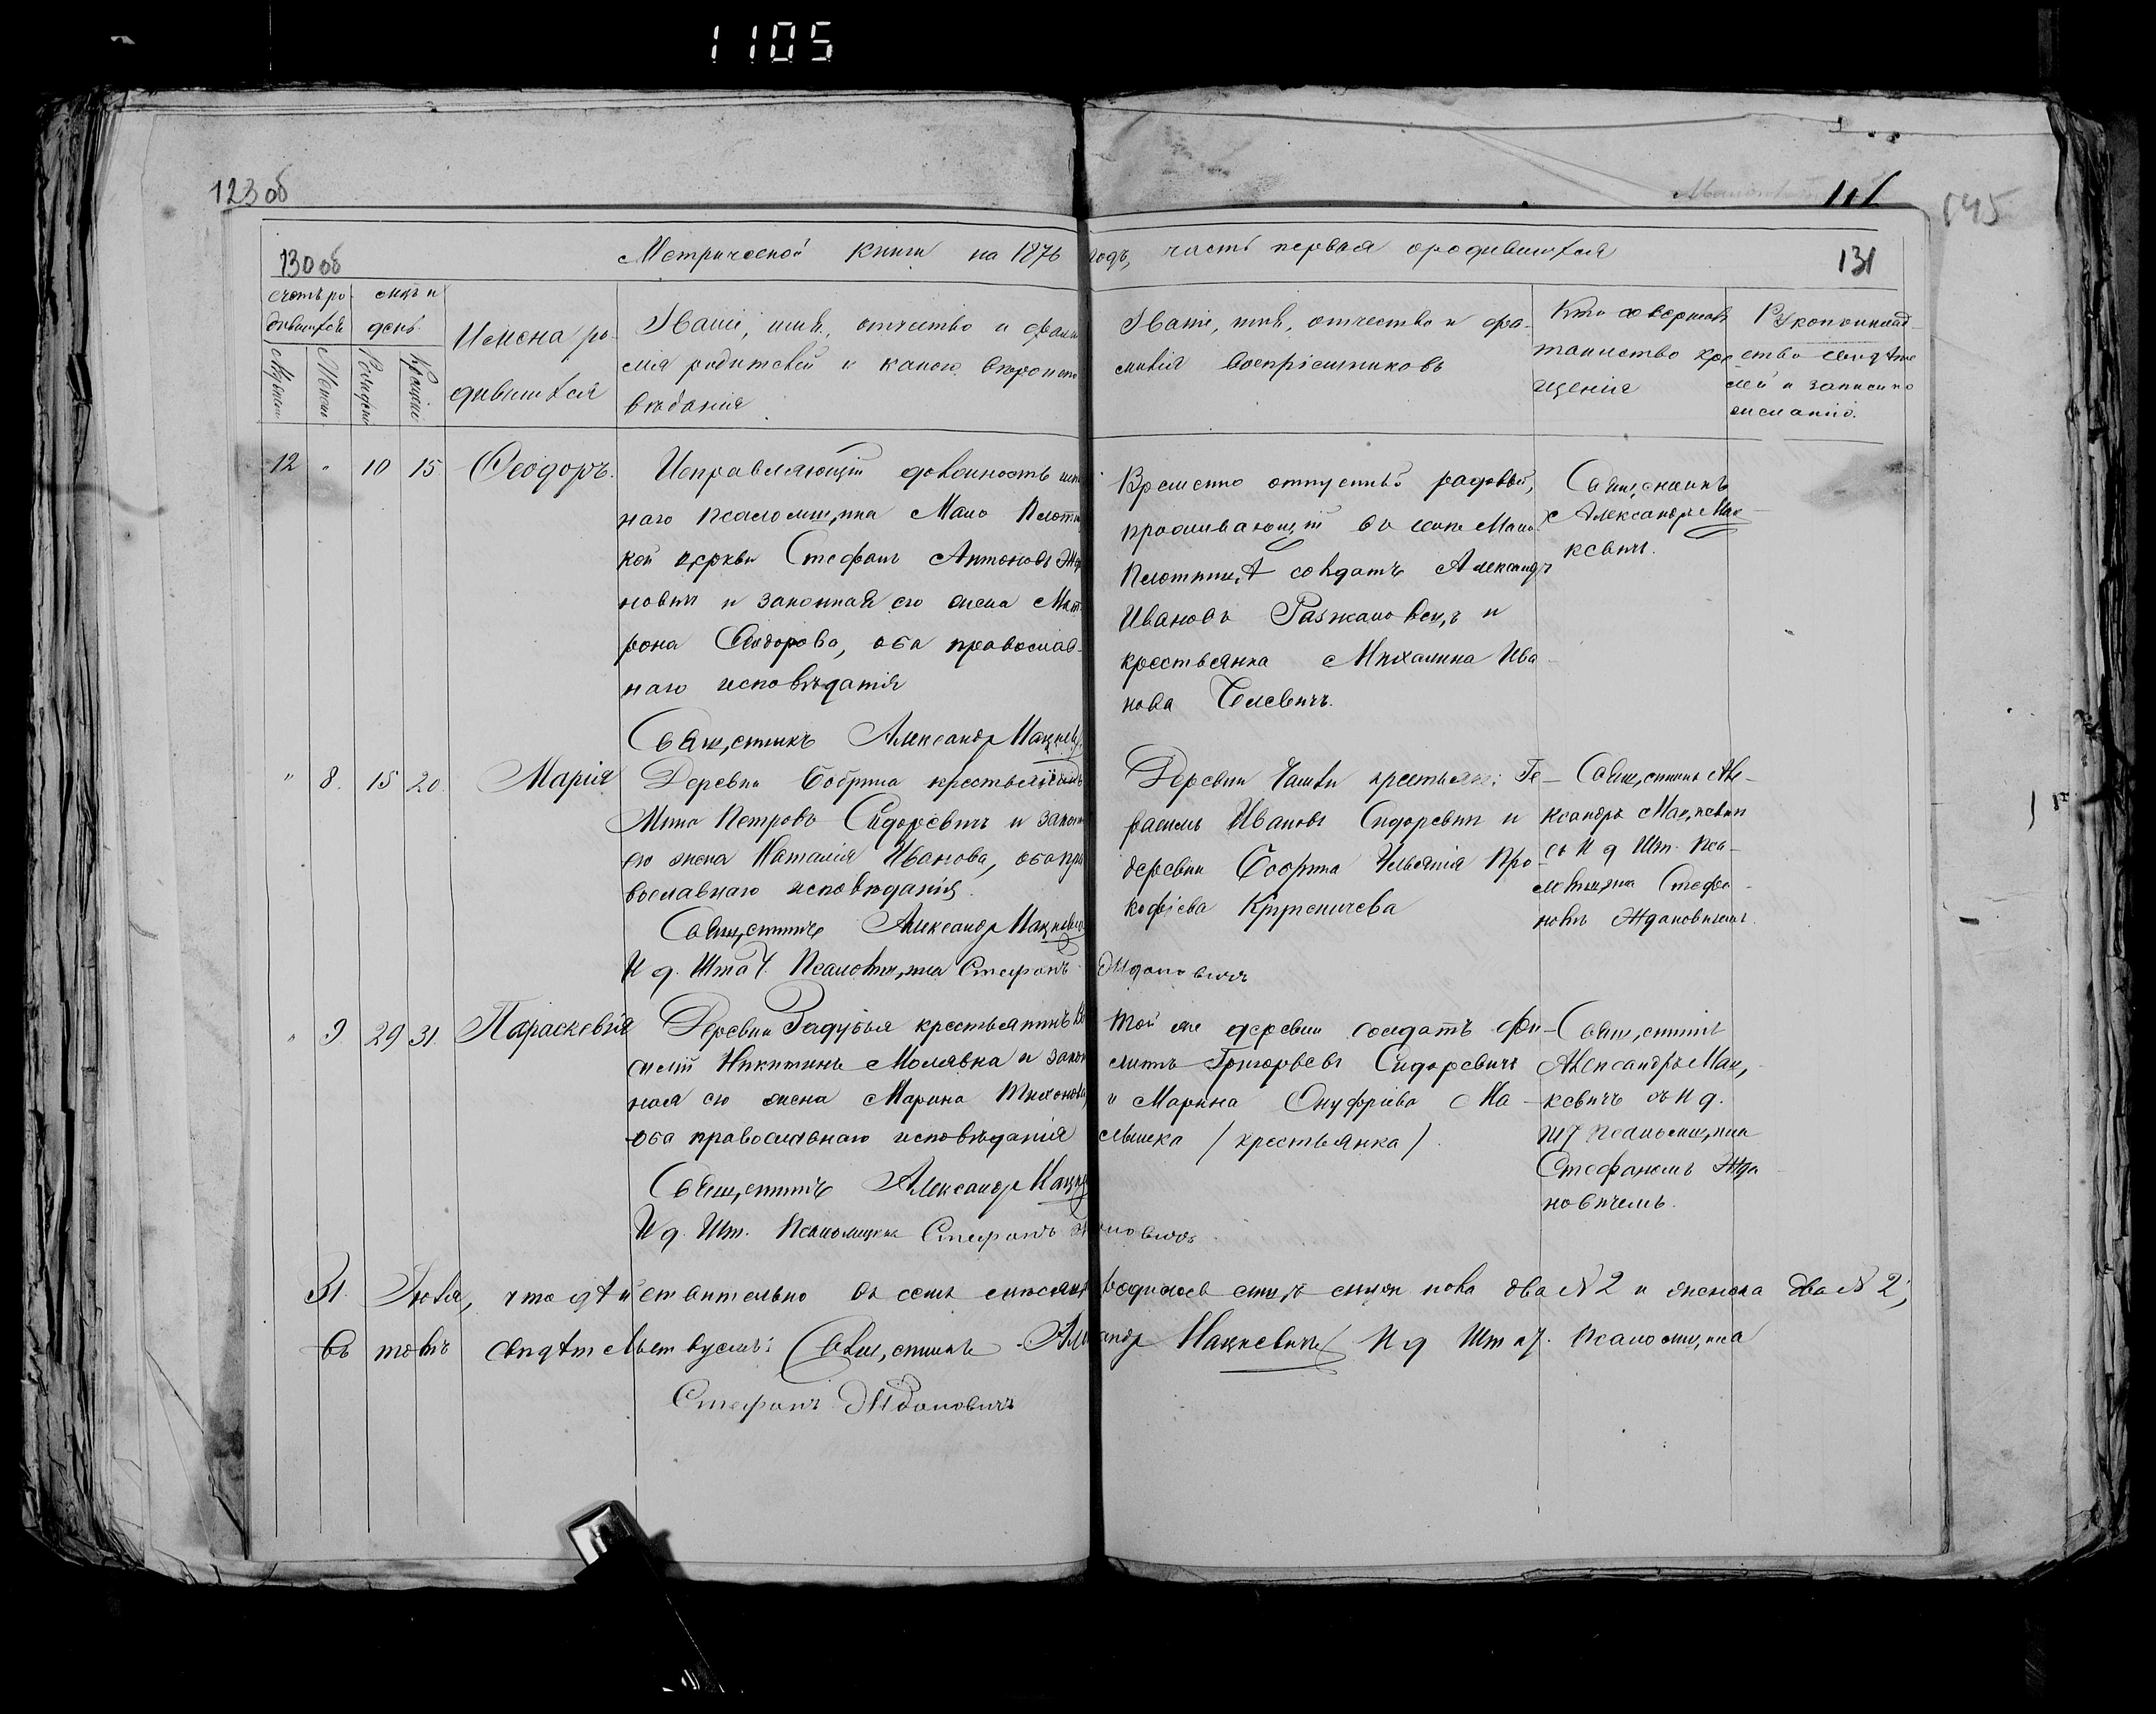 1105
123 об
111
145
130 об
Метрической книги на 1876 годъ, часть первая о родившихся
131
Счетъ ро-
дившихся
Мѣц и
день
Мужеск
Женск
Рожденія
Крещенія
Имена ро-
дившихся
Званіе, имя, отчество и фами
лія родителей и какого вѣроиспо
вѣданія
Званіе, имя, отчество и фа-
милія воспріемниковъ
Кто совершалъ
таинство кре
щенія
Рукоприклад-
ство свидѣте
лей и записи по
желанію.
12 " 10 15 Ѳеодоръ.
Исправляющій должность шта
наго псаломщика Мало Плотни
кой церкви Стефанъ Антоновъ Жда
новичъ и законная его жена Мат
рона Ѳеодорова, оба православ-
наго исповѣданія
Священникъ Александръ Мацкеви
Временно отпускной рядовой,
проживающій въ селѣ Мало
Плотницѣ солдатъ Александръ
Ивановъ Разжаловецъ и
крестьянка Михалина Ива-
нова Велевичъ.
Священникъ
Александръ Мац-
кевичъ.
" 8. 15 20. Марія
Деревни Бобрика крестьянинъ
Мина Петровъ Сидоревичъ и закон
его жена Наталія Иванова, оба пра
вославнаго исповѣданія.
Священникъ Александръ Мацкевичъ
И д. Штат. Псаломщика Стефанъ Ждановичъ
Деревни Чашки крестьян: Ге-
расимъ Ивановъ Сидоревичъ и
деревни Бобрика Ульянія Про-
кофіева Крутеничева
Священникъ Але-
ксандръ Мацкевичъ
съ И д Шт. Пса-
ломщика Стефа-
номъ Ждановичемъ.
" 9 29 31 Параскевія
Деревни Задубья крестьянинъ Ва
силій Никитинъ Молявка и закон
ная его жена Марина Тихонова,
оба православнаго исповѣданія
Священникъ Александръ Мацке
И д. Шт. Псаломщика Стефанъ Ждановичъ
Той же деревни солдатъ Фи-
липъ Григорьевъ Сидоревичъ
и Марина Онуфріева Ма-
лышка / крестьянка /.
Священникъ
Александръ Мац-
кевичъ съ И д.
Шт Псаломщика
Стефаномъ Жда
новичемъ.
31 Іюля, что дѣйствительно въ семъ мѣсяцѣ родилось мужескаго пола два № 2 и женска два № 2,
въ томъ свидѣтельствуемъ: Священникъ Александръ Мацкевичъ И д Штат. Псаломщика
Стефанъ Ждановичъ